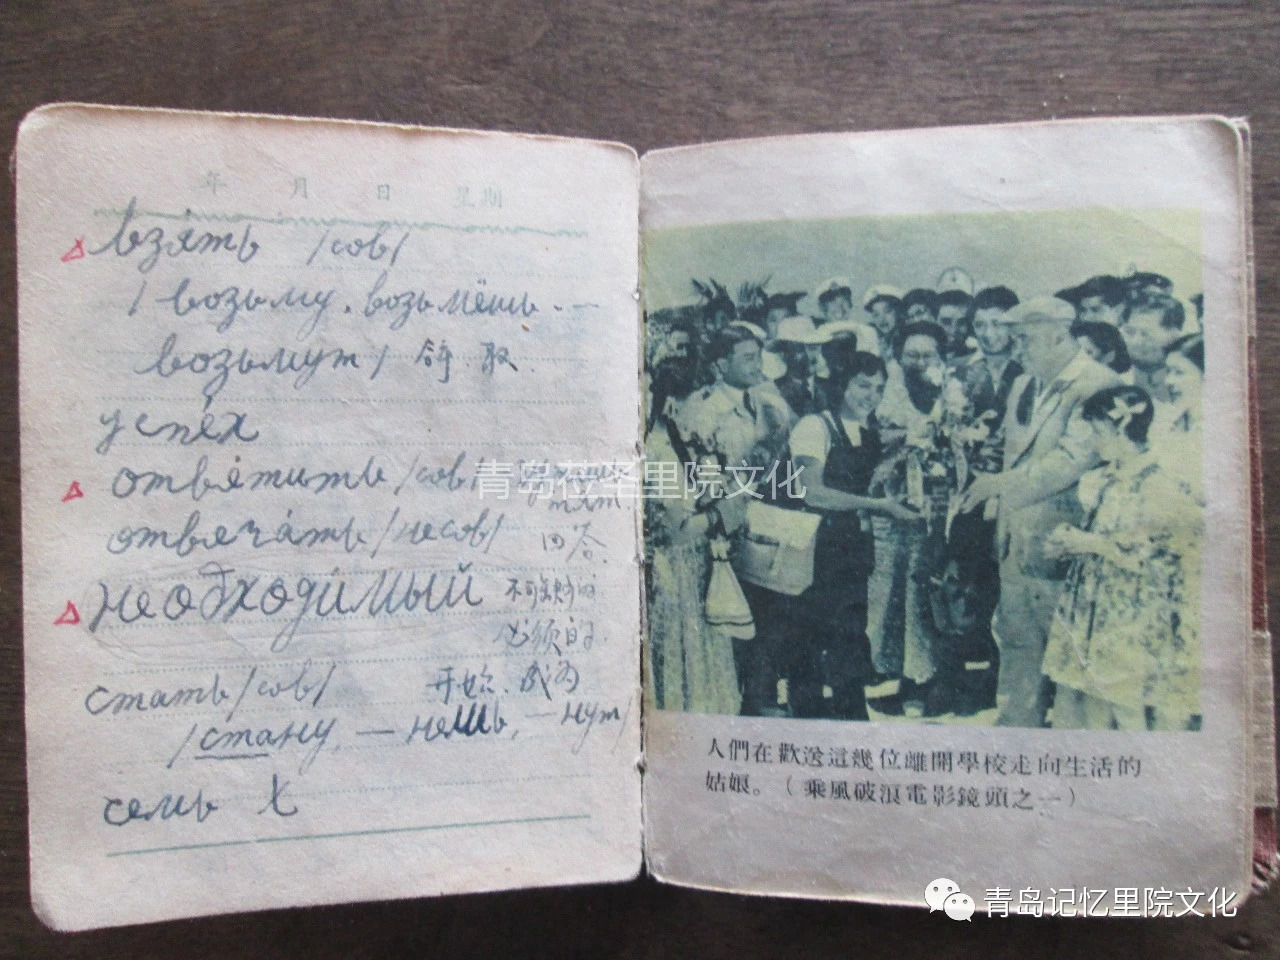 年 月 日 星期
взять /сов/
/ возьму, возьмёшь. —
возьмут / 拿. 取.
успех
ответить /сов/
отвечать /несов/ 回答.
необходимый 不可缺少的
必须的.
стать /сов/ 开始. 成为
/стану, — нешь, — нут/
семь 七
人們在歡送這幾位離開學校走向生活的
姑娘。(乘風破浪電影鏡頭之一)
青岛记忆里院文化